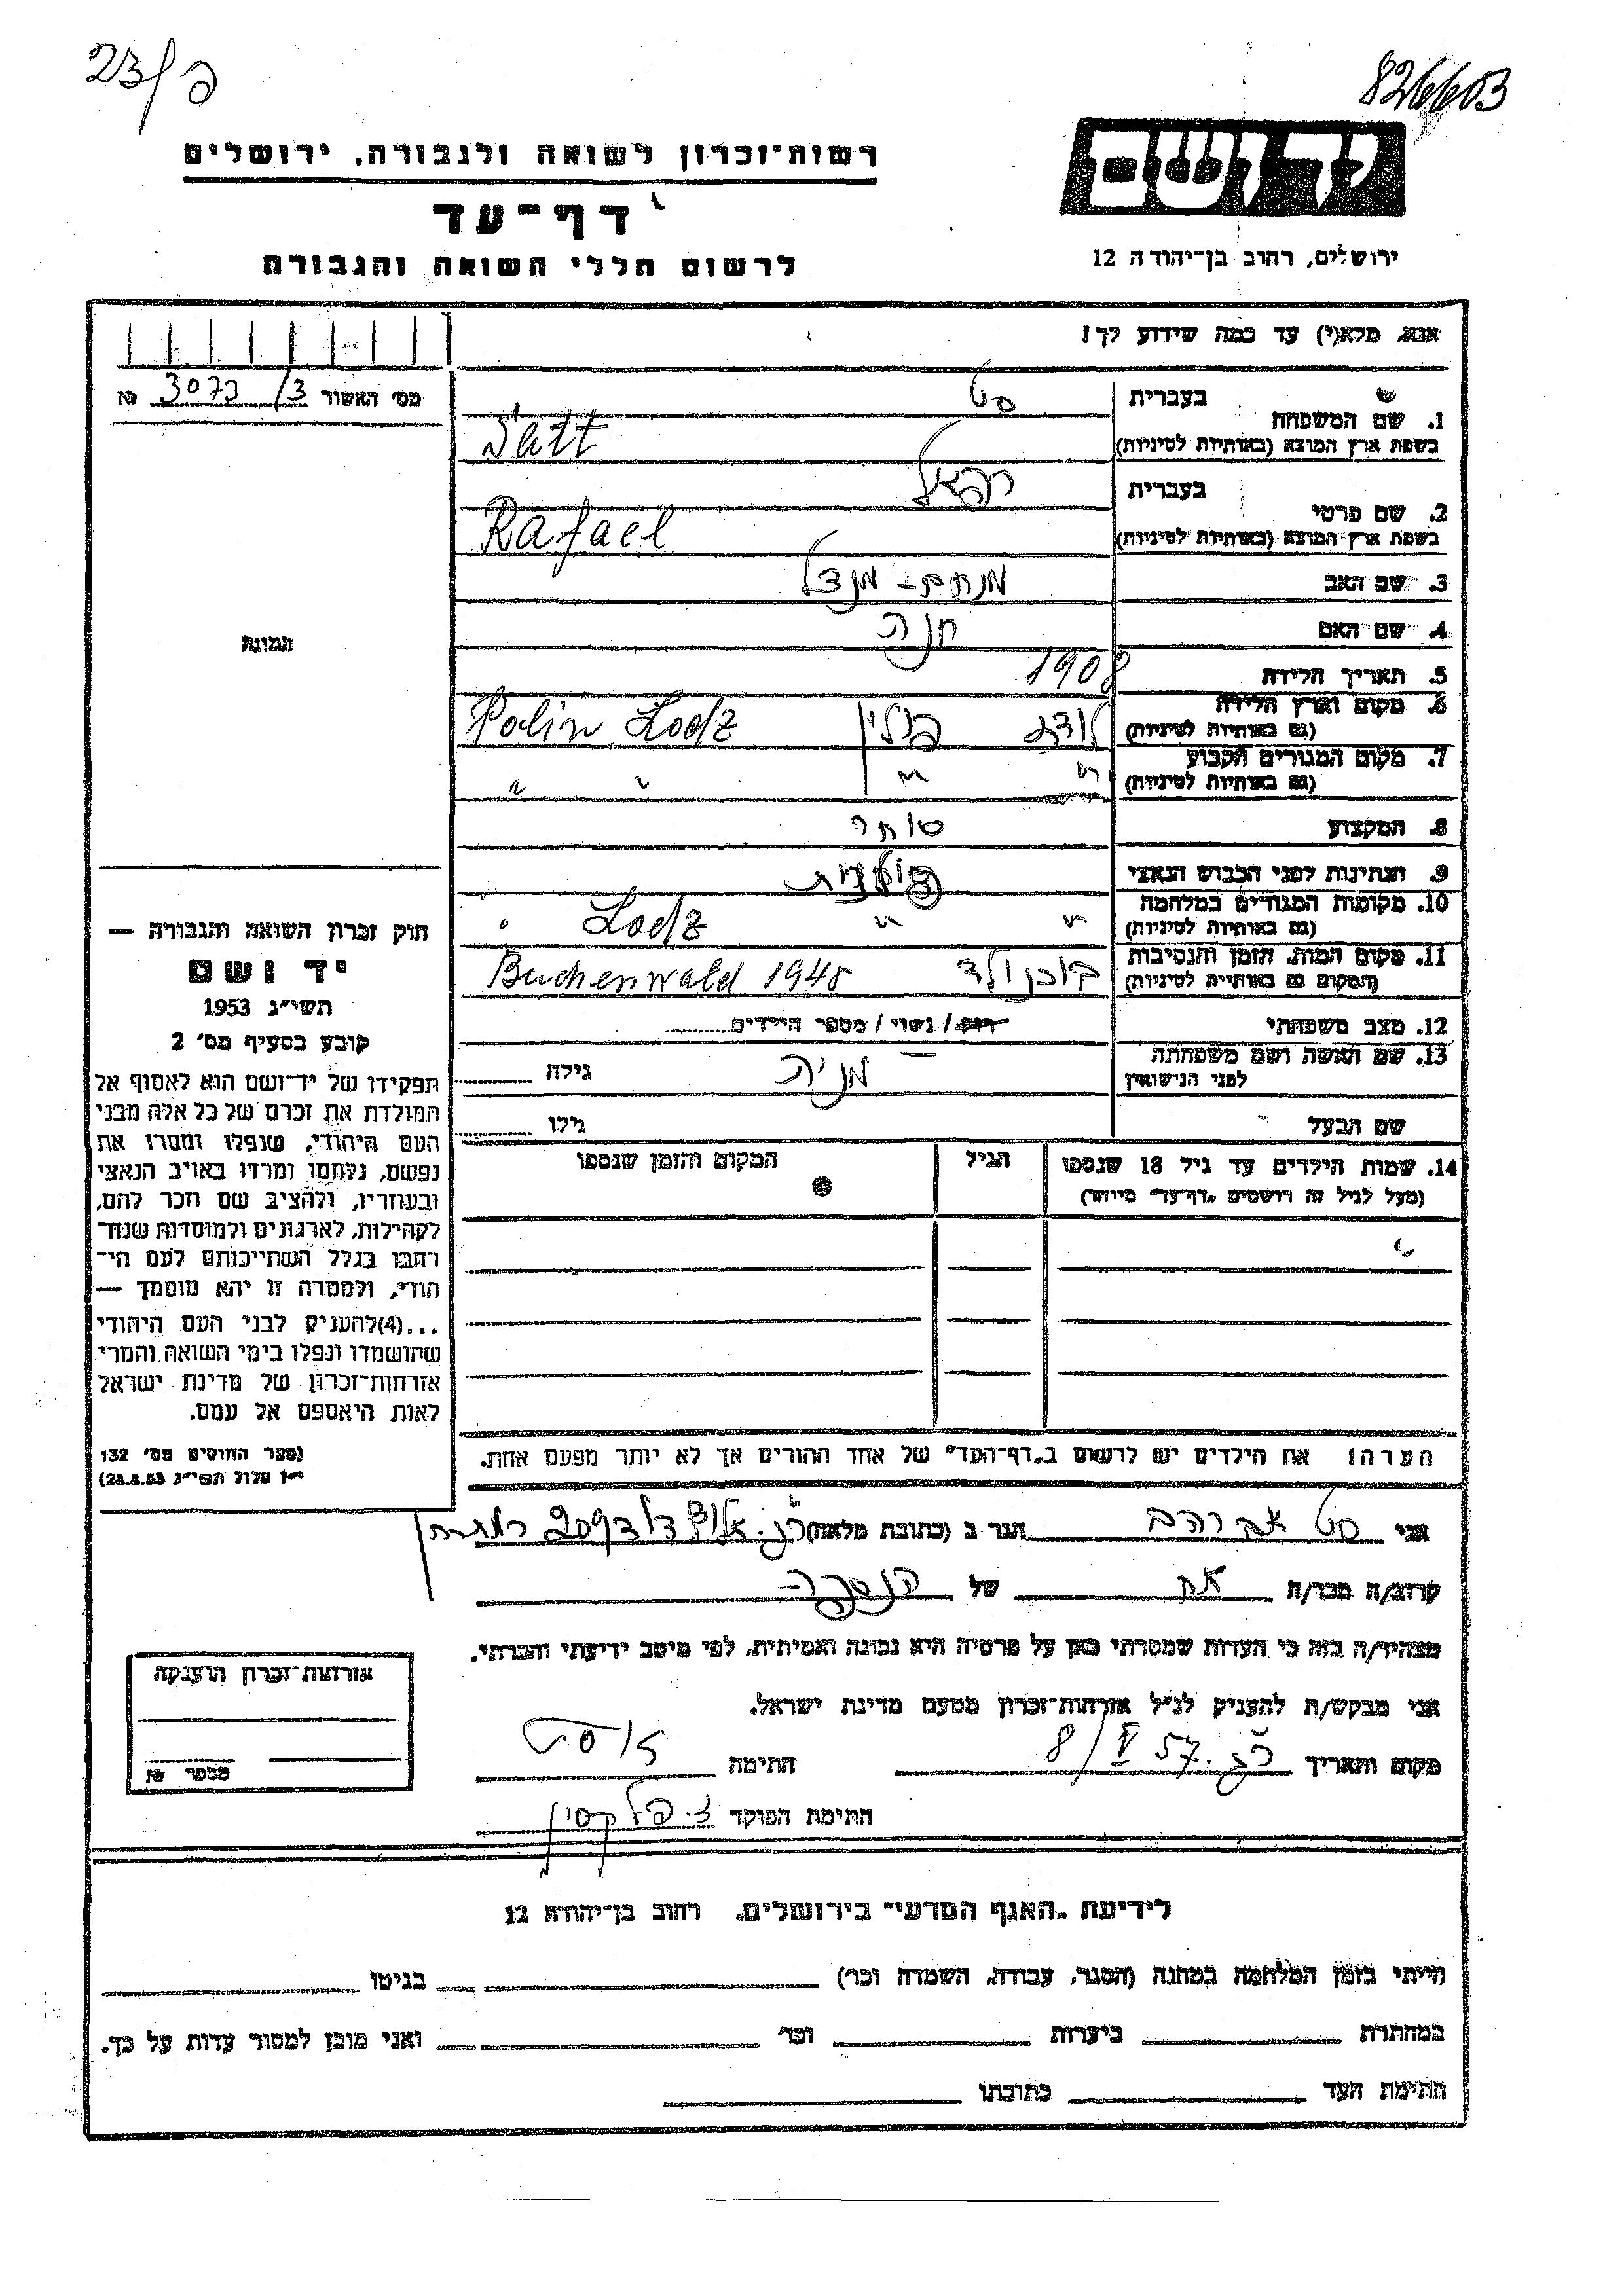 23/פ
826603
רשות־זכרון לשואה ולגבורה, ירושלים
דף־עד
לרשום חללי השואה והגבורה
יד ושם
ירושלים, רחוב בן־יהודה 12
אנא, מלא(י) עד כמה שידוע לך!
מס׳ האשור 3073/3 №
בעברית סט
1. שם המשפחה
בשפת ארץ המוצא (באותיות לטיניות) Satt
בעברית רפאל
2. שם פרטי
בשפת ארץ המוצא (באותיות לטיניות) Rafael
3. שם האב מנחם - מנדל
4. שם האם חנה
5. תאריך הלידה 1908
6. מקום וארץ הלידה לודז פולין Polin Lodz
(גם באותיות לטיניות)
7. מקום המגורים הקבוע " " " "
(גם באותיות לטיניות)
8. המקצוע סוחר
9. הנתינות לפני הכבוש הנאצי פולנית
10. מקומות המגורים במלחמה " " Lodz "
(גם באותיות לטיניות)
11. מקום המות, הזמן והנסיבות בוכןולד Buchenwald 1945
(המקום גם באותיות לטיניות)
12. מצב משפחתי רוק/ נשוי / מספר הילדים
13. שם האשה ושם משפחתה מניה גילה
לפני הנישואין
שם הבעל גילו
14. שמות הילדים עד גיל 18 שנספו הגיל המקום והזמן שנספו
(מעל לגיל זה רושמים „דף־עד” מיוחד)
הערה! את הילדים יש לרשום ב„דף־העד” של אחד ההורים אך לא יותר מפעם אחת.
תמונה
חוק זכרון השואה והגבורה —
יד ושם
תשי״ג 1953
קובע בסעיף מס׳ 2
תפקידו של יד־ושם הוא לאסוף אל
המולדת את זכרם של כל אלה מבני
העם היהודי, שנפלו ומסרו את
נפשם, נלחמו ומרדו באויב הנאצי
ובעוזריו, ולהציב שם וזכר להם,
לקהילות, לארגונים ולמוסדות שנח־
רבו בגלל השתייכותם לעם הי־
הודי, ולמטרה זו יהא מוסמך —
...(4)להעניק לבני העם היהודי
שהושמדו ונפלו בימי השואה והמרי
אזרחות־זכרון של מדינת ישראל
לאות היאספם אל עמם.
(ספר החוקים מס׳ 132
י״ז אלול תשי״ג 28.8.53)
אני סט אברהם הגר ב (כתובת מלאה)
קרוב/ה מכר/ה אח של הנספה
מצהיר/ה בזה כי העדות שמסרתי כאן על פרטיה היא נכונה ואמיתית, לפי מיטב ידיעתי והכרתי.
אני מבקש/ת להעניק לנ״ל אזרחות־זכרון מטעם מדינת ישראל.
מקום ותאריך ר״ג. 57 8/V חתימה א סט
חתימת הפוקד
אזרחות־זכרון הוענקה
מספר №
לידיעת „האגף המדעי” בירושלים, רחוב בן־יהודה 12
הייתי בזמן המלחמה במחנה (הסגר, עבודה, השמדה וכו׳) בגיטו
במחתרת ביערות וכו׳ ואני מוכן למסור עדות על כך.
חתימת העד כתובתו